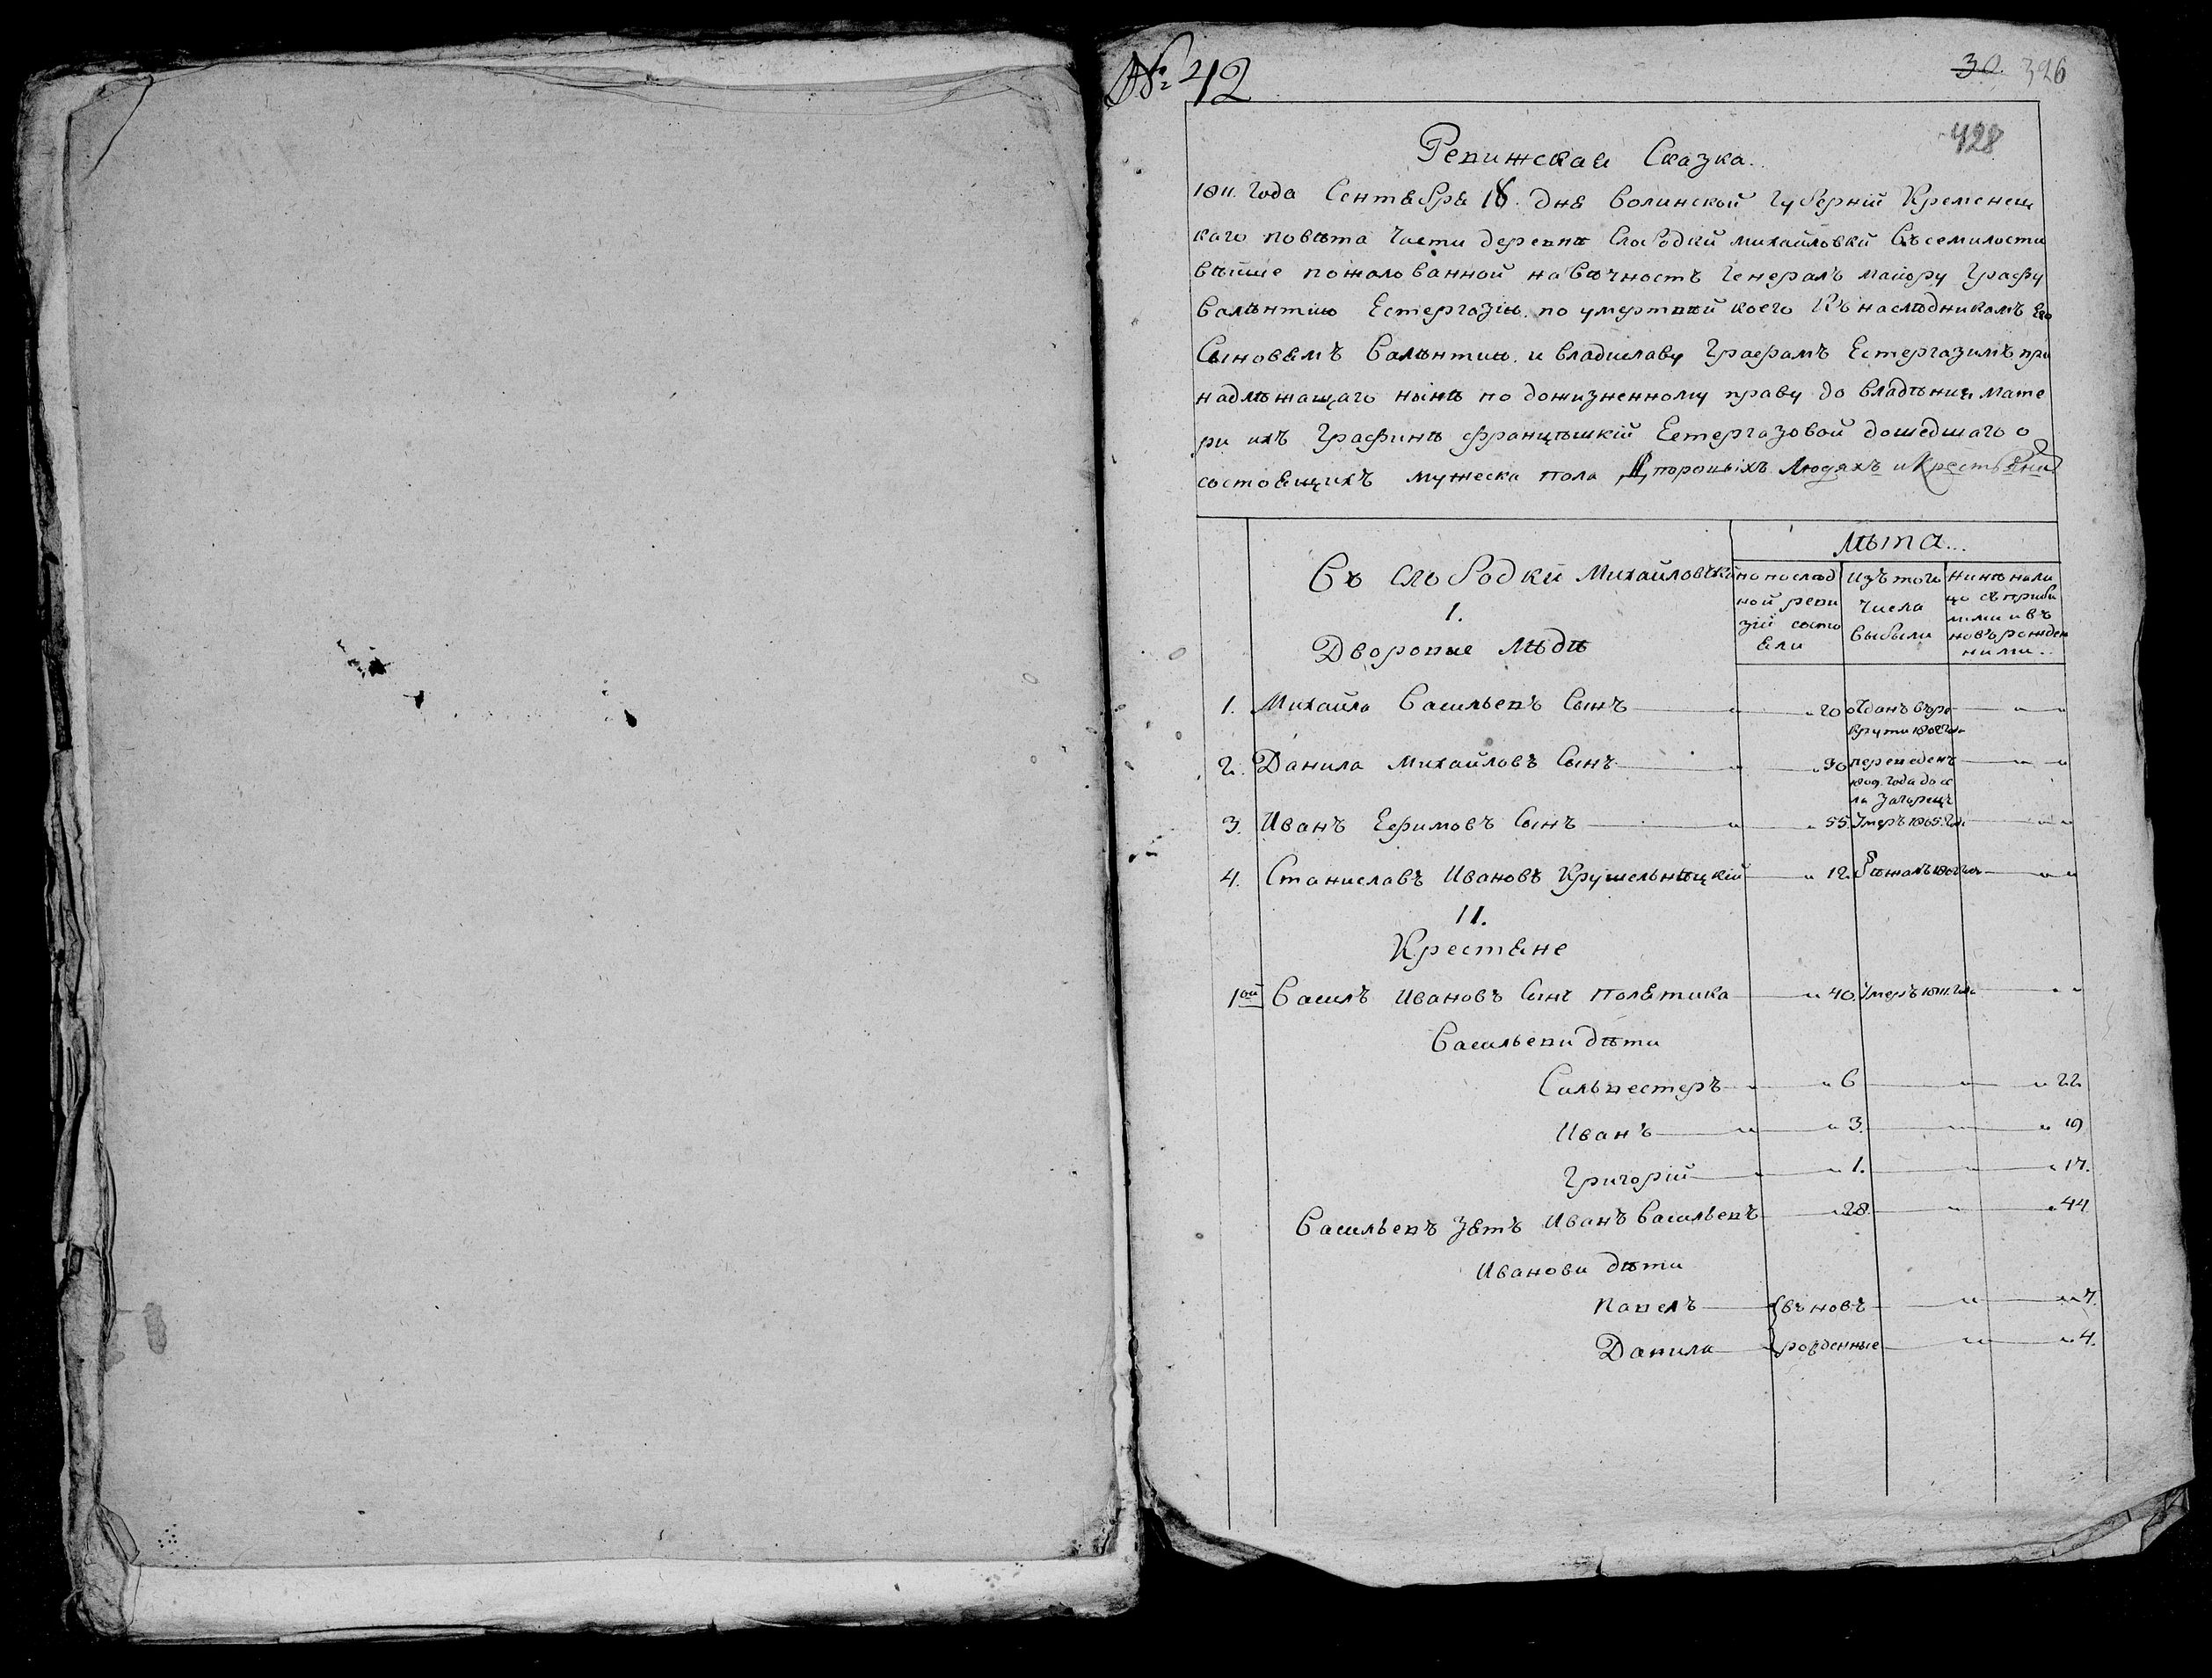 № 42
30. 326
428
Ревижская Сказка.
1811. года Сентября 18. дня Волинской Губерній Кременец
каго повѣта Части деревнѣ Слободкй Михайловкй Всемилости
вѣйше пожалованной на вѣчность Генералъ маіору Графу
Валѣнтію Естергазію. по умертвій коего Къ наслѣдникамъ Его
Сыновямъ Валѣнтію. и Владиславу Графамъ Естергазимъ при
надлѣжащаго нынѣ по дожизненному праву до владѣния мате
ри ихъ Графинѣ францѣшкій Естергазовой дошедшаго о
состоящихъ мужеска пола Дворовыхъ Людяхъ и Крестьяни
Лѣта...
Въ слободкй Михайловкй
по послѣд
ной реви
зій состо
яли
Изъ того
Числа
выбыли
нинѣ нали
цо съ приби
лими и въ
новъ рожден
ними..
I.
Дворовие Люди
1. Михайло Васильевъ Сынъ 20 Отданъ въ ре
крути 1808 Года
2. Данила Михайловъ Сынъ 30 переведенъ
1809. года до се
ла Загорецъ
3. Иванъ Ефимовъ Сынъ 55. Умеръ 1805. Года
4. Станиславъ Ивановъ Крушельнѣцкій 12. Бѣжалъ Года
II.
Крестяне
1ый Василъ Ивановъ Сынъ Полятика 40. Умеръ 1811. Года
Васильеви дѣти
Сильвестеръ 6 22
Иванъ 3. 19
Григорій 1. 17.
Васильевъ Зять Иванъ Васильевъ 28. 44
Иванови дѣти
Павелъ въ новъ 7.
Данила рожденные 4.